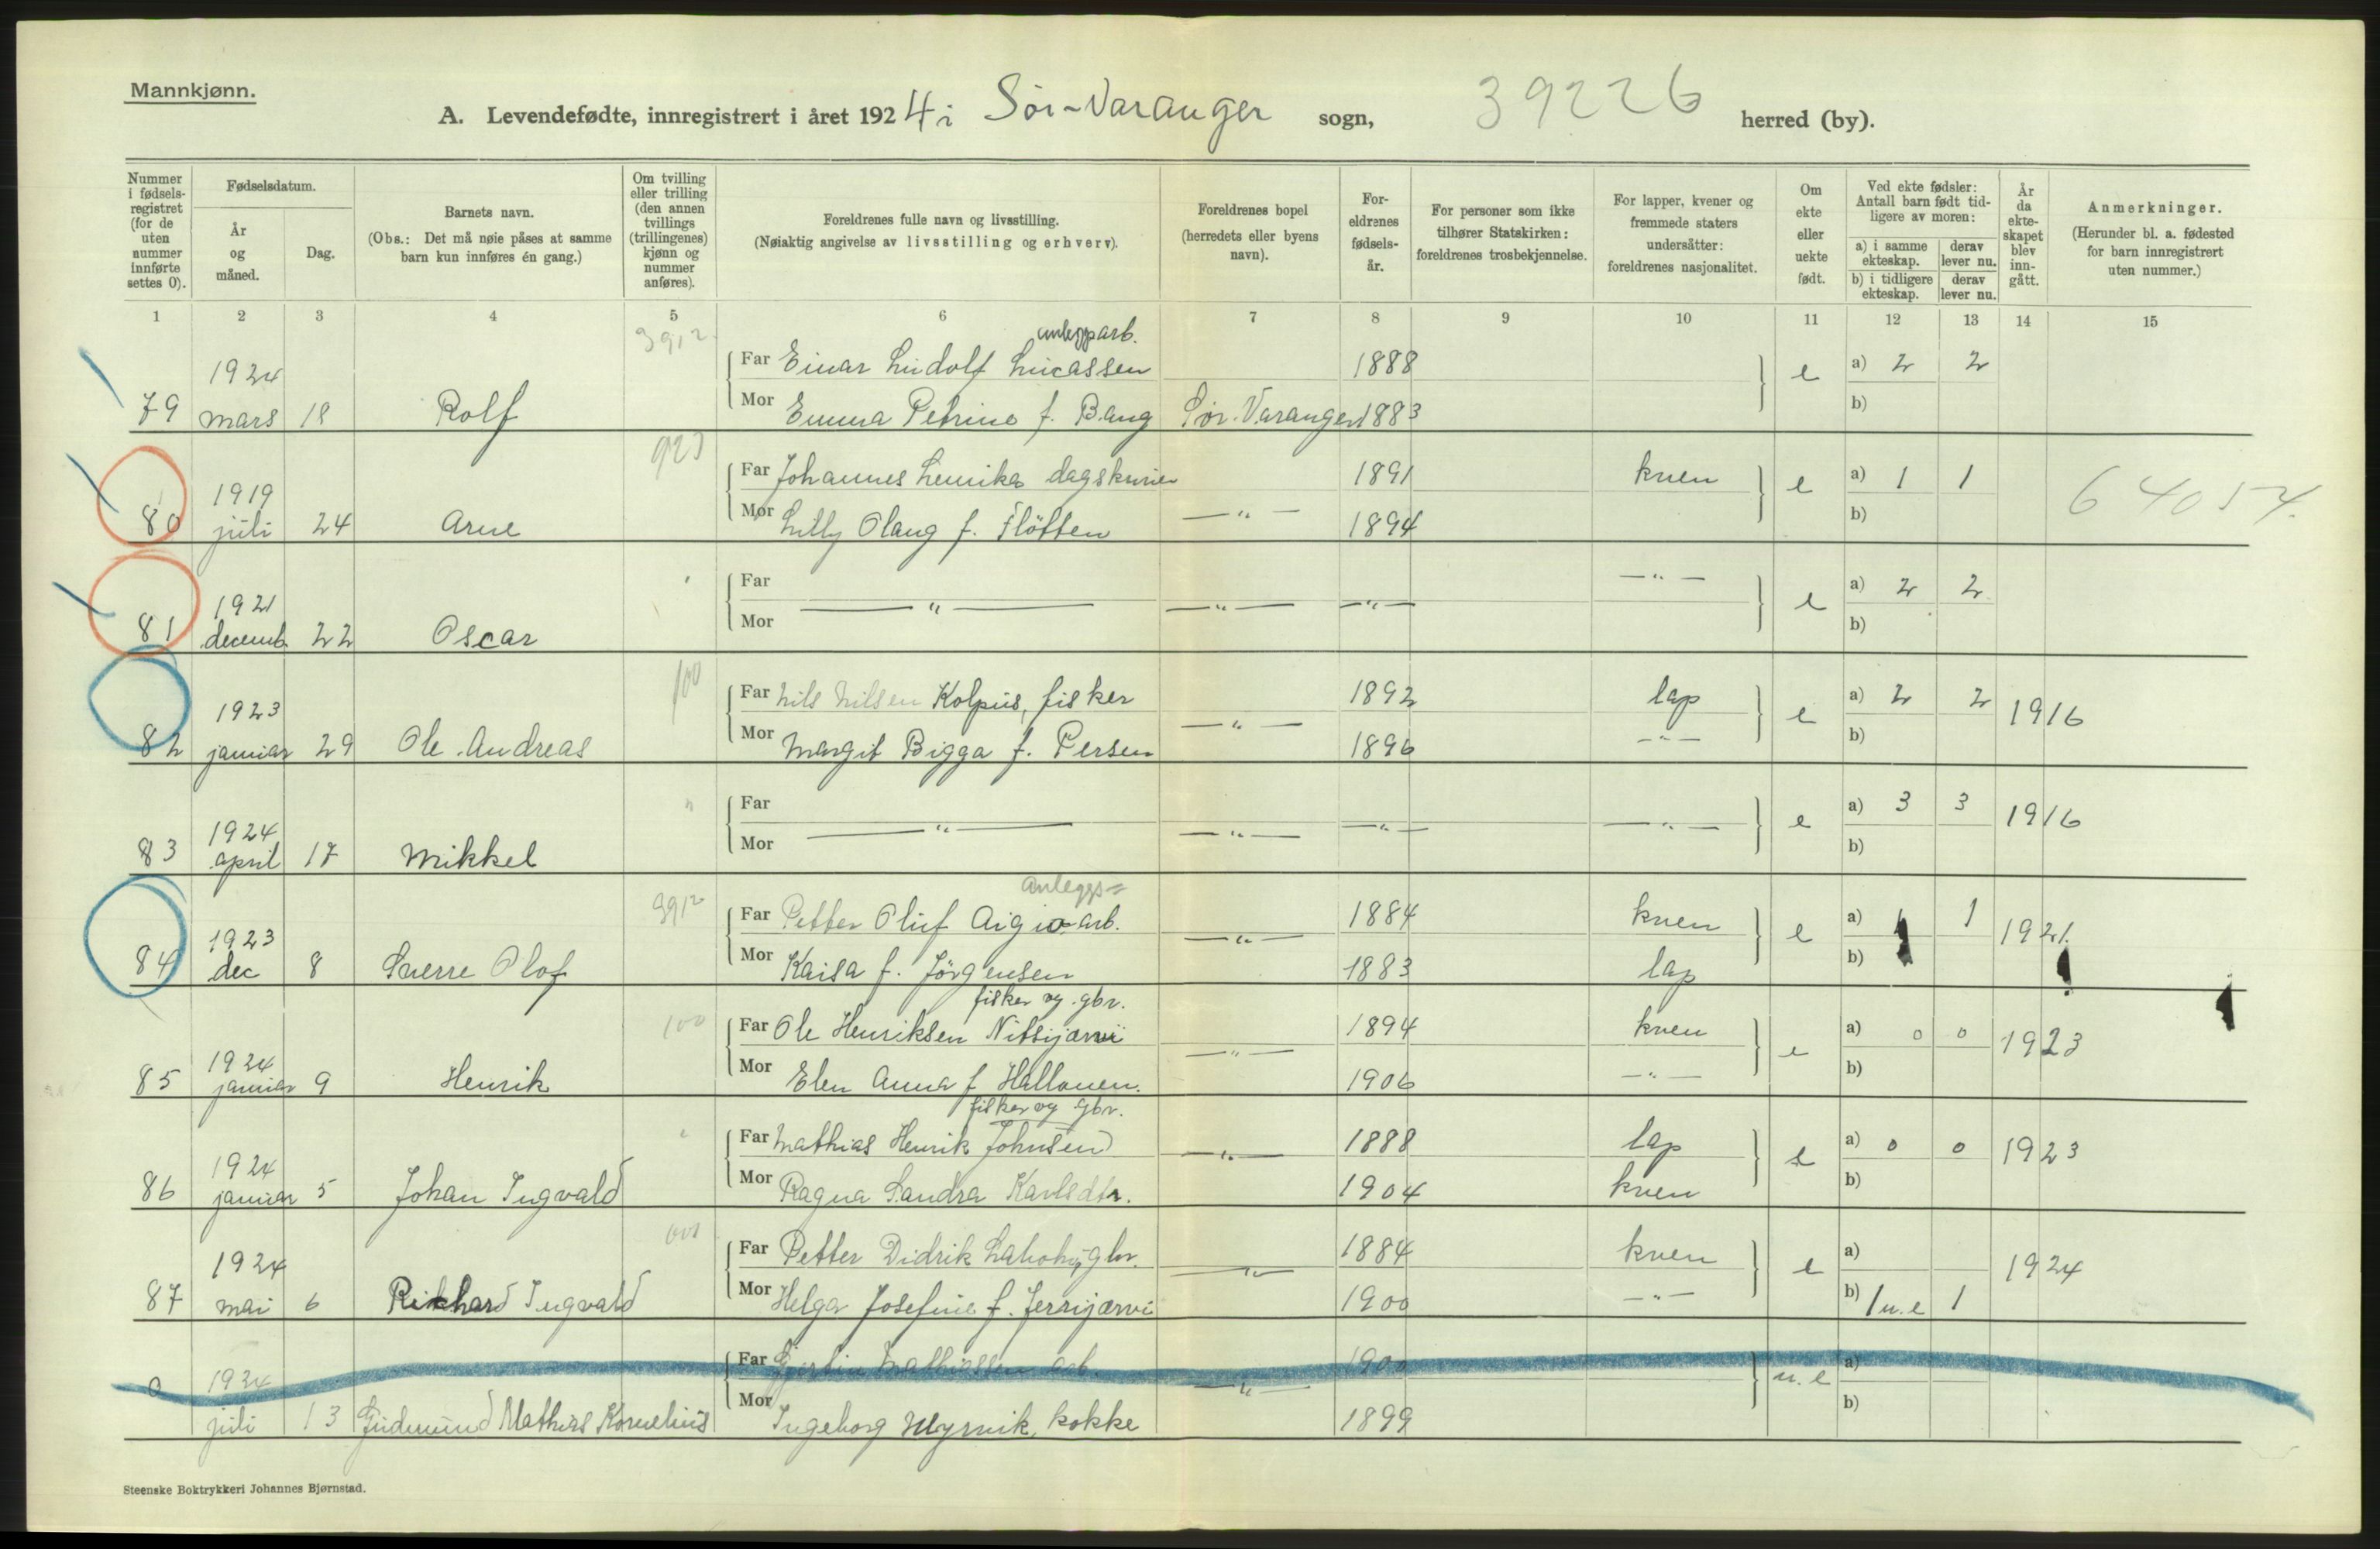 Mannkjønn.
A. Levendefødte, innregistrert i året 1924 i Sör-Varanger sogn, 39226 herred (by).
Nummer i fødselsregistret (for de uten nummer innførte settes 0).
Fødselsdatum.
År og måned.
Dag.
Barnets navn.
(Obs.: Det må nøie påses at samme barn kun innføres én gang.)
Om tvilling eller trilling (den annen tvillings (trillingenes) kjønn og nummer anføres).
Foreldrenes fulle navn og livsstilling.
(Nøiaktig angivelse av livsstilling og erhverv).
Foreldrenes bopel (herredets eller byens navn).
Foreldrenes fødselsår.
For personer som ikke tilhører Statskirken: foreldrenes trosbekjennelse.
For lapper, kvener og fremmede staters undersåtter: foreldrenes nasjonalitet.
Om ekte eller uekte født.
Ved ekte fødsler: Antall barn født tidligere av moren:
a) i samme ekteskap. derav lever nu.
b) i tidligere ekteskap. derav lever nu.
År da ekteskapet blev inngått.
Anmerkninger.
(Herunder bl. a. fødested for barn innregistrert uten nummer.)
1 2 3 4 5 6 7 8 9 10 11 12 13 14 15
3912 anleggarb.
1924 Far Einar Ludolf Lucassen 1888 e a) 2 2
79 mars 18 Rolf Mor Emma Petrine f. Bang Sör-Varanger 1883 b)
1919 Far Johannes Lemika 1891 kven e a) 1 1 64054
80 juli 24 Arne Mor Lilly Olaug f. Flötten —"— 1894 b)
1921 Far —"— —"— —"— —"— e a) 2 2
81 decemb. 22 Oscar Mor b)
100
1923 Far Nils Nilsen Kolpus, fisker 1892 lap e a) 2 2 1916
82 januar 29 Ole Andreas Mor Margit Bigga f. Persen —"— 1896 —"— b)
1924 Far —"— —"— —"— —"— e a) 3 3 1916
83 april 17 Mikkel Mor b)
3912 anleggs=
1923 Far Petter Oluf Aigio arb. 1884 kven e a) 1 1921
84 dec 8 Sverre Olof Mor Kaisa f. Jörgensen —"— 1883 lap b)
100 fisker og gbr.
1924 Far Ole Henriksen Nitsijærvi 1894 kven e a) 0 0 1923
85 januar 9 Henrik Mor Elen Anna f Hallonen. —"— 1906 —"— b)
fisker og gbr.
1924 Far Mathias Henrik Johnsen 1888 lap e a) 0 0 1923
86 januar 5 Johan Ingvald Mor Ragna Sandra Karlsdtr. —"— 1904 kven b)
1924 Far Petter Didrik gbr. 1884 kven e a) 1924
87 mai 6 Rikhard Ingvald Mor Helga Josefine f. Jerrijærvi —"— 1900 —"— b) 1 u.e 1
0 1924 Far Mathiassen arb. 1900 u.e a)
juli 13 Gudmund Mathias Kornelius Mor Ingeborg Myrvik, kokke —"— 1899 b)
Steenske Boktrykkeri Johannes Bjørnstad.